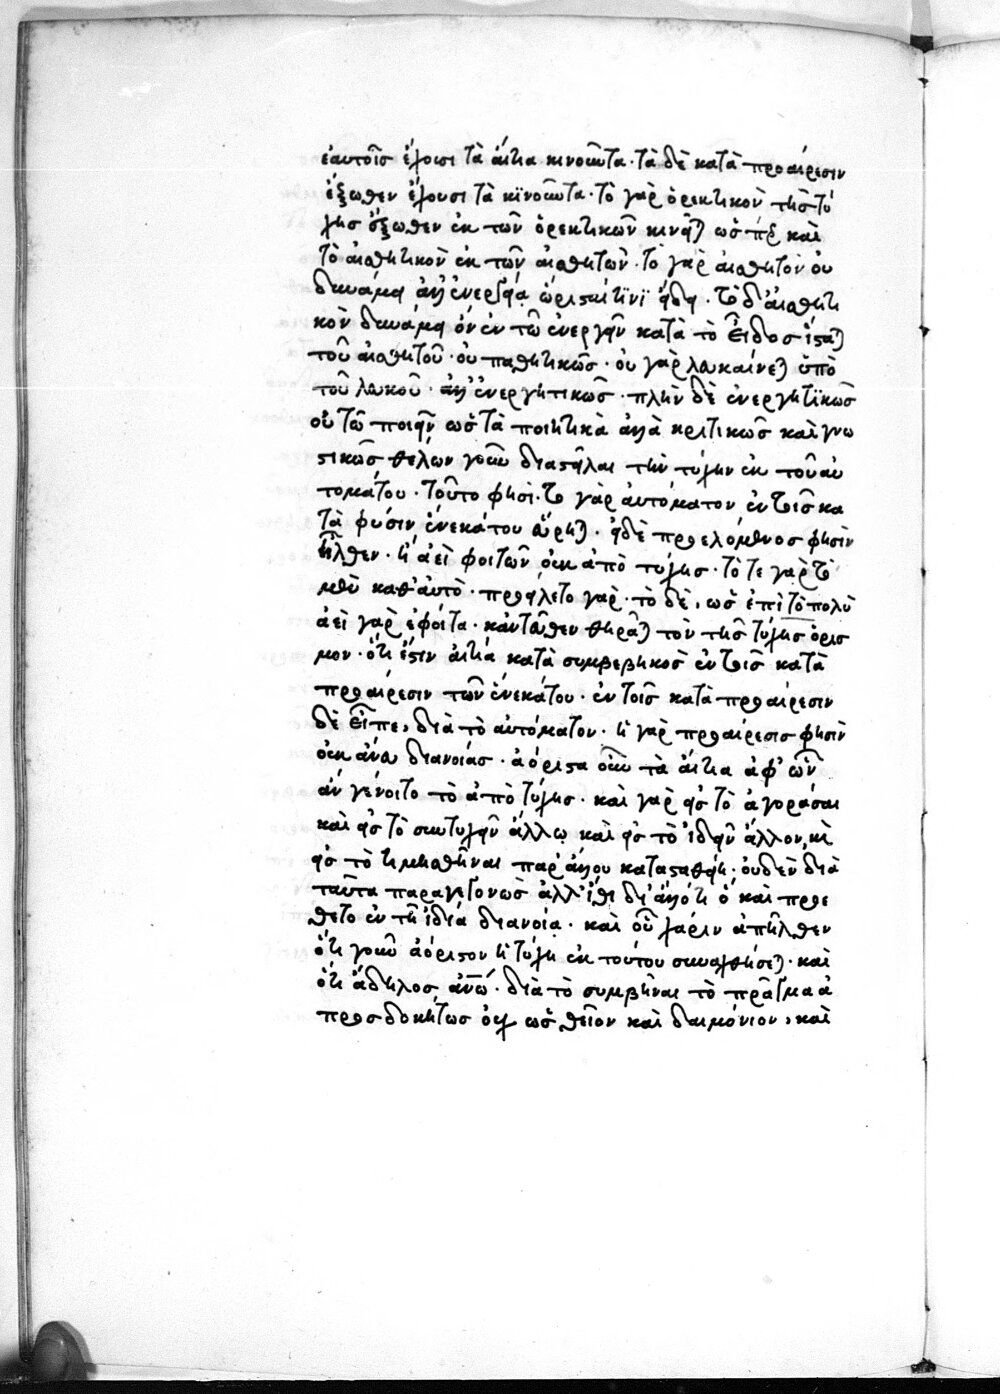 ἑαυτοῖς ἔχουσι τὰ αἴτια κινοῦντα· τὰ δὲ κατὰ προαίρεσιν
ἔξωθεν ἔχουσι τὰ κϊνοῦντα· τὸ γὰρ ὀρεκτικὸν τῆς ψυ
χῆς ἔξωθεν ἐκ τῶν ὀρεκτικῶν κινεῖται ὥσπερ καὶ
τὸ αἰσθητικὸν ἐκ τῶν αἰσθητῶν· τὸ γὰρ αἰσθητὸν οὐ
δυνάμει ἀλλ' ἐνεργείᾳ ὥρισταί τϊνϊ εἴδει· τὸ δ' αἰσθητι
κὸν δυνάμει ὂν ἐν τῶ ἐνεργεῖν κατὰ τὸ εἶδος ἵσταται
τοῦ αἰσθητοῦ· οὐ παθητικῶς· οὐ γὰρ λευκαίνεται ὑπὸ
τοῦ λευκοῦ· ἀλλ' ἐνεργητικῶς· πλὴν δὲ ἐνεργητϊκῶς
οὐ τῶ ποιεῖν ὡς τὰ ποιητικὰ ἀλλὰ κριτικῶς καὶ γνω
στικῶς θέλων γοῦν διαστεῖλαι τὴν τύχην ἐκ τοῦ αὐ
τομάτου· τοῦτο φησί· τὸ γὰρ αὐτόματον ἐν τοῖς κα
τὰ φύσιν ἕνεκά του εὕρηται· εἰ δὲ προελόμενος φησὶν
ἦλθεν· ἢ ἀεὶ φοιτῶν οὐκ ἀπὸ τύχης· τό τε γὰρ τὸ
μὲν καθ' αὐτὸ· προείλετο γάρ· τὸ δὲ, ὡς ἐπὶ τὸ πολὺ
ἀεὶ γὰρ ἐφοίτα· κἀντεῦθεν θηρᾶται τὸν τῆς τύχης ὁρισ
μον· ὅτι ἔστιν αἰτία κατὰ συμβεβηκος ἐν τοῖς κατὰ
προαίρεσιν τῶν ἕνεκά του· ἐν τοῖς κατὰ προαίρεσιν
δὲ εἶπε, διὰ τὸ αὐτόματον· ἡ γὰρ προαίρεσις φησὶν
οὐκ ἄνευ διανοίας· ἀόριστα οὖν τὰ αἴτια ἀφ' ὧν
ἂν γένοιτο τὸ ἀπὸ τύχης· καὶ γὰρ εἰς τὸ ἀγοράσαι
καὶ εἰς τὸ συντυχεῖν ἄλλῳ καὶ εἰς τὸ ἰδεῖν ἄλλον, καὶ
εἰς τὸ τιμηθῆναι παρ' ἄλλου κατασταθείη· οὐδὲν διὰ
ταῦτα παραγεγονὼς ἀλλ' ἔτι δι' ἄλλό τι ὃ καὶ προε
θετο ἐν τῆ ἰδίᾳ διανοίᾳ· καὶ οὗ χάριν ἀπῆλθεν
ὅτι γοῦν ἀόριστον ἡ τύχη ἐκ τούτου συναχθήσεται· καὶ
ὅτι ἄδηλος ἀνῶ· διὰ τὸ συμβῆναι τὸ πρᾶγμα ἀ
προσδοκήτως οἷον ὡς θεῖον καὶ δαιμόνιον, καὶ